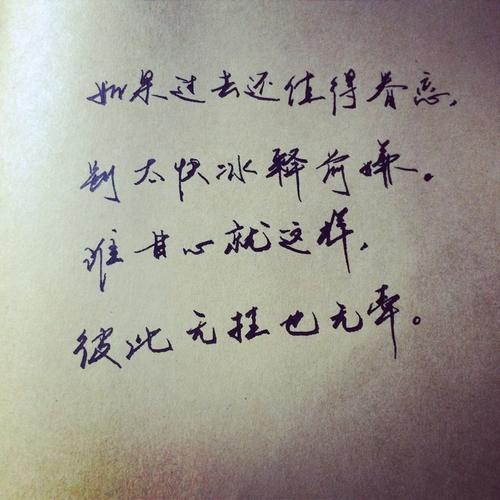 如果过去还值得眷恋，
别太快冰释前嫌。
谁甘心就这样，
彼此无挂也无牵。